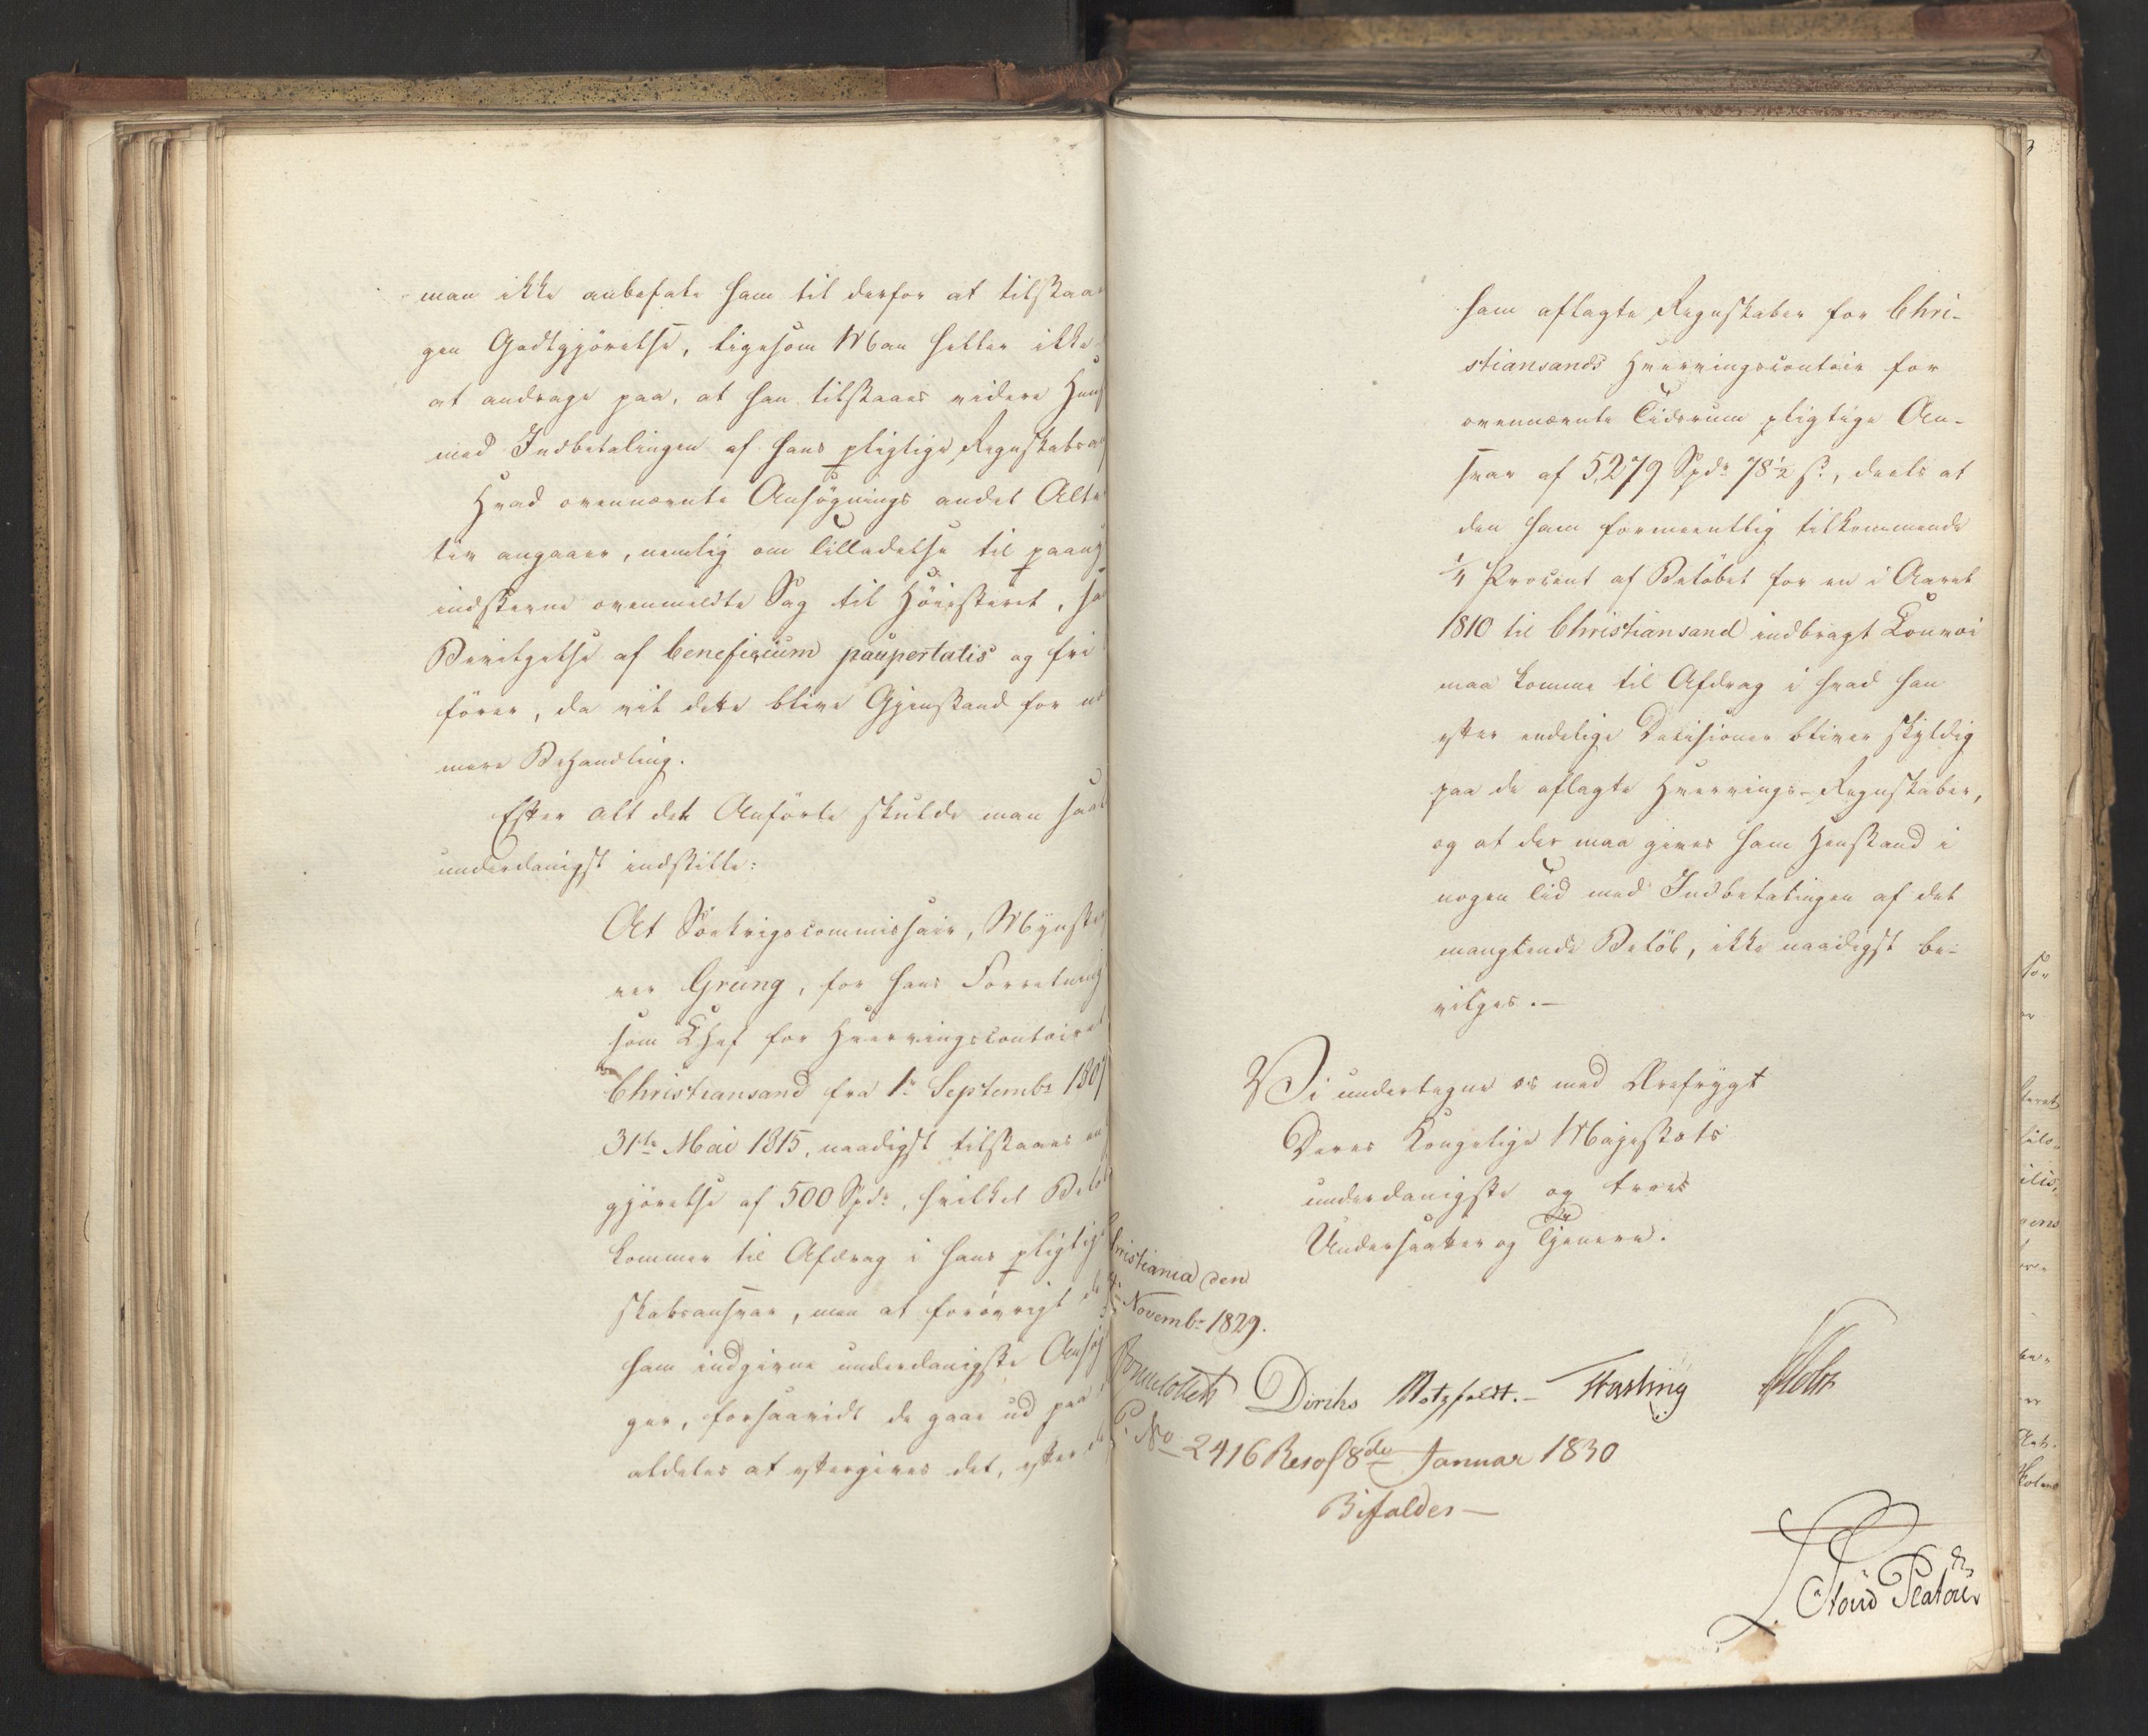 man ikke anbefale ham til derfor at tilstaae
gen Godtgjörelse, ligesom Man heller ikke
at andrage paa, at han tilstaaes videre Hens
med Indbetalingen af hans pligtige Regnskabsan
Hvad ovennævnte Ansøgnings andet Alte
tiv angaaer, nemlig om Tilladelse til paany
indstevne ovenmeldte Sag til Höiesteret, sa
Bevilgelse af beneficium paupertatis og fri
förer, da vil dette blive Gjenstand for næ
mere Behandling.
Efter alt det Anförte skulde man saal
underdanigst indstille:
At Söekrigscommissair, Mynst
ver Grüng, for hans Forretning
som Chef for Hvervingscontoiret
Christiansand fra 1e Septembr 180
31te Mai 1815, naadigst tilstaaes en
gjörelse af 500 Spdr, hvilket Belöb
kommer til Afdrag i hans pligtige
skabsansvar, men at forövrigt de
ham indgivne underdanigste Ansög
ger, forsaavidt de gaae ud paa
aldeles at eftergives det, efter de
ham aflagte Regnskaber for Chri-
stiansands Hvervingscontoir for
ovennævnte Tidsrum pligtige An-
svar af 5,279 Spdr 78½ s., deels at
den ham formeentlig tilkommende
¼ Procent af Belöbet for en i Aaret
1810 til Christiansand indbragt Convoi
maa komme til Afdrag i hvad han
efter endelige Decisioner bliver skyldig
paa de aflagte Hvervings-Regnskaber,
og at der maa gives ham Henstand i
nogen Tid med Indbetalingen af det
manglende Belöb, ikke naadigst be-
vilges.—
Vi undertegne os med Ærefrygt
Deres Kongelige Majestæts
underdanigste og troe
Undersaatter og Tjenere.
Christiania den
Novembr 1829.
Diriks Motzfeldt.— Fasting
P. No 2416 Resol 8de Januar 1830
Bifaldes—